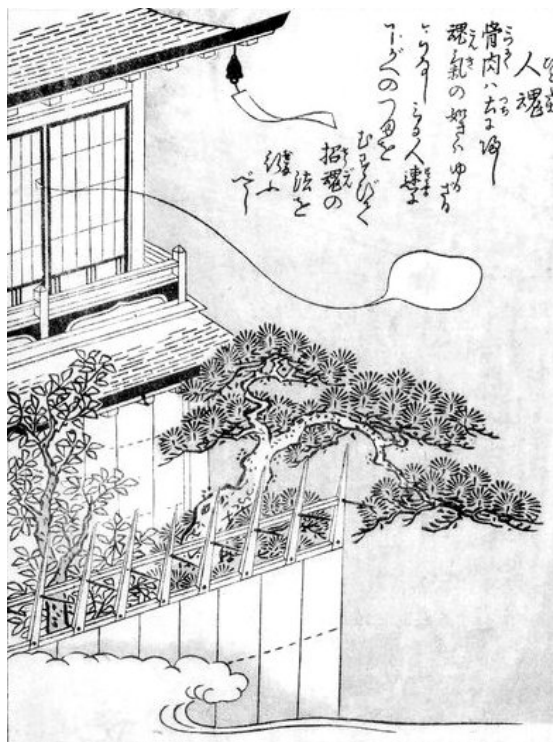 人魂
骨肉ハ土に帰し
魂氣の如きハゆかざる
ことなしみる人速に
下がへのつまを
むすびて
招魂の
法を
ふ
べし